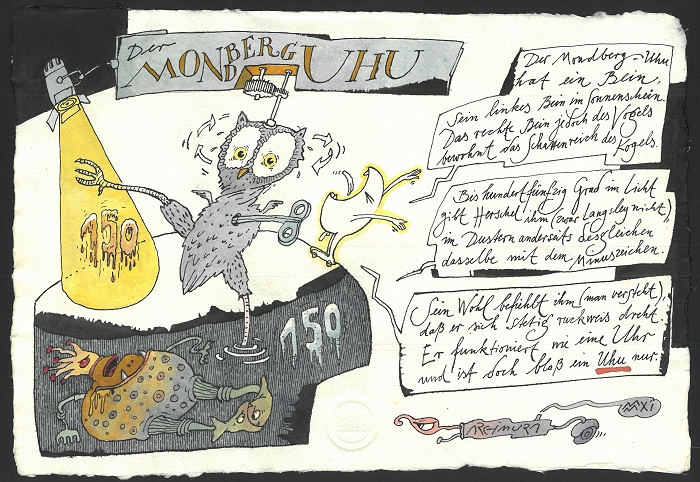 Der
MONDBERG UHU
Der Mondberg-Uhu
hat ein Bein,
Sein linkes Bein im Sonnenschein.
Das rechte Bein jedoch des Vogels
bewohnt das Schattenreich des Kogels.
Bis hundertfünfzig Grad im Licht
gibt Herschel ihm (zwar Langsley nicht),
im Dustern anderseits desgleichen
dasselbe mit dem Minuszeichen.
Sein Wohl befiehlt ihm (man versteht),
daß er sich stetig ruckweis dreht.
Er funktioniert wie eine Uhr
und ist doch bloß ein Uhu nur.
150
150
MXI